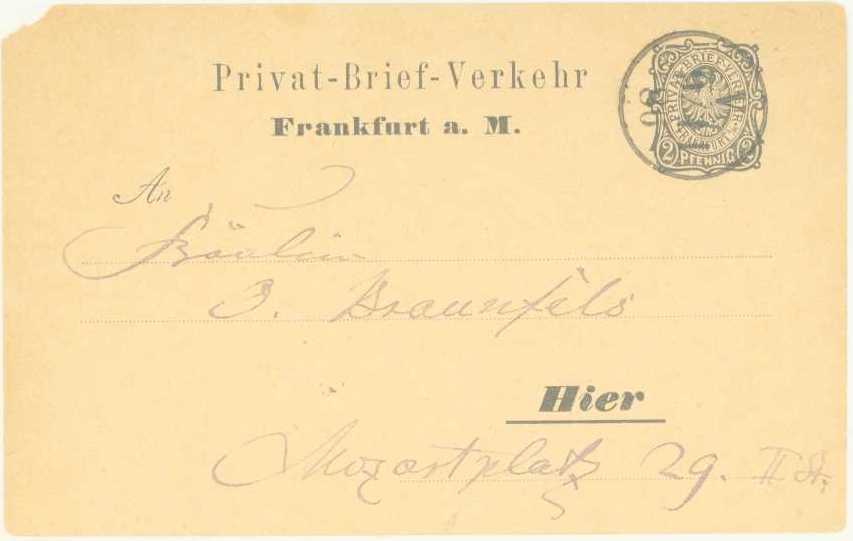 Privat-Brief-Verkehr
Frankfurt a. M.
PRIVAT-BRIEF-VERKEHR
FRANKFURT a/M
2 PFENNIG 2
An
Fräulein
J. Braunfels
Hier
Mozartplatz 29. II St.